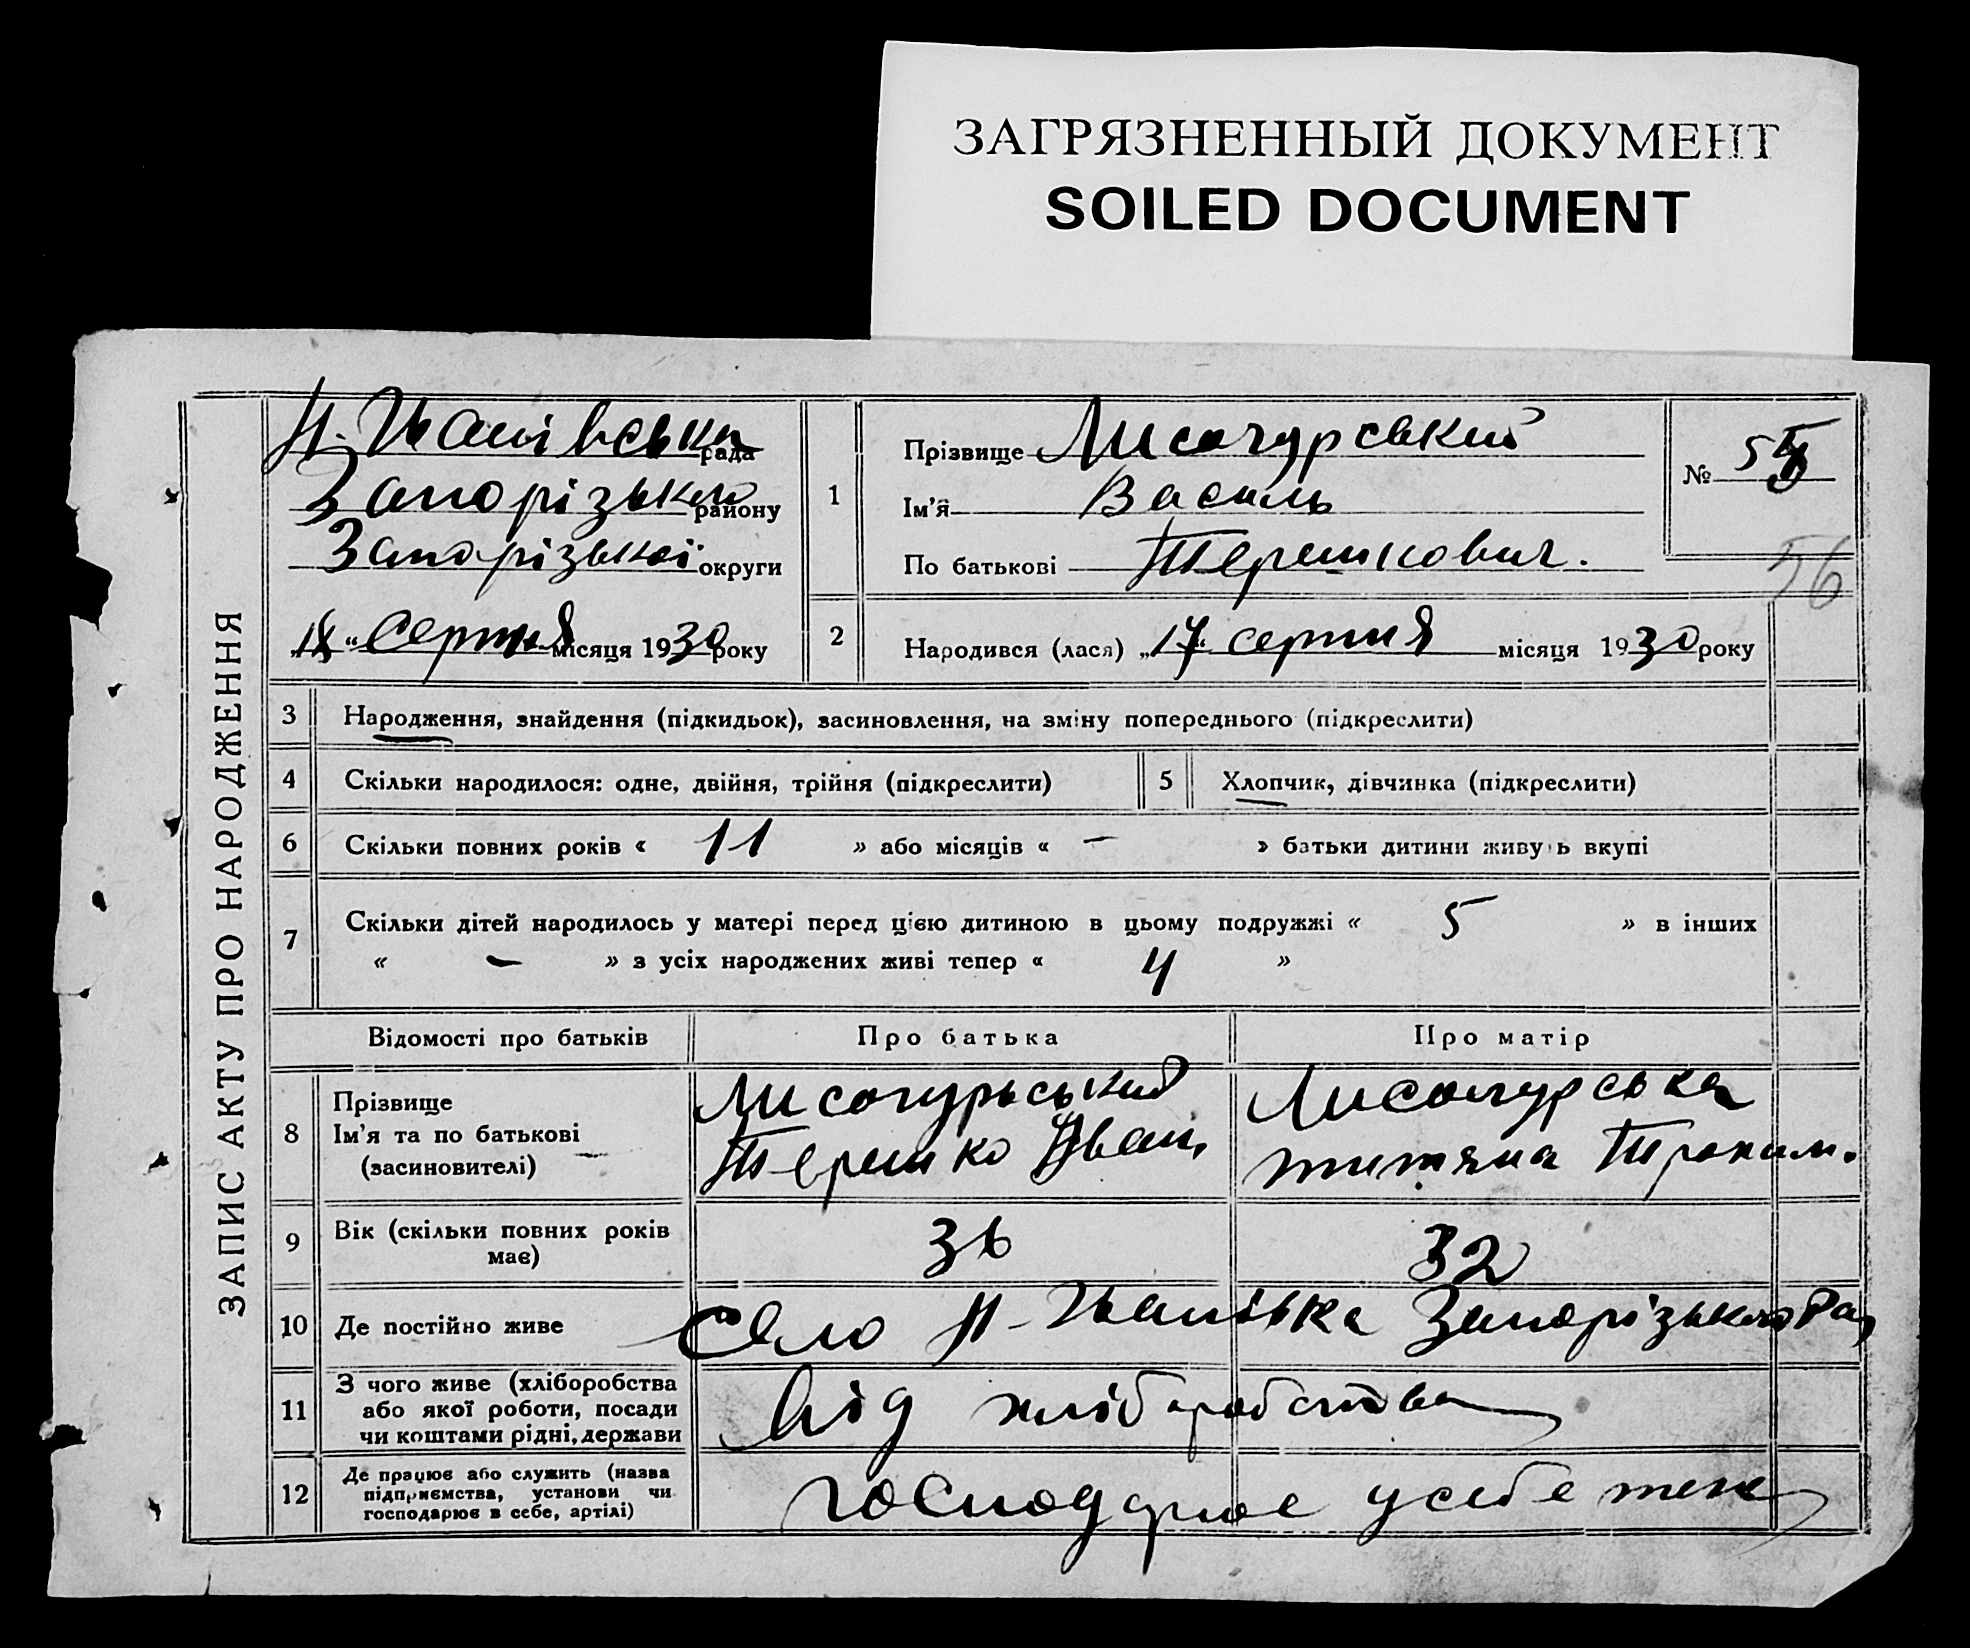 ЗАГРЯЗНЕННЫЙ ДОКУМЕНТ
SOILED DOCUMENT
ЗАПИС АКТУ ПРО НАРОДЖЕННЯ
Н. Іванівська рада
Запорізького району
Запорізької округи
„18“ Серпня місяця 1930 року
1
Прізвище Лисогурський
Ім'я Василь
По батькові Терешкович.
№ 55
56
2 Народився (лася) „17“ серпня місяця 1930 року
3 Народження, знайдення (підкидьок), засиновлення, на зміну попереднього (підкреслити)
4 Скільки народилося: одне, двійня, трійня (підкреслити) 5 Хлопчик, дівчинка (підкреслити)
6 Скільки повних років « 11 » або місяців « – » батьки дитини живуть вкупі
7 Скільки дітей народилось у матері перед цією дитиною в цьому подружжі « 5 » в інших
« – » з усіх народжених живі тепер « 4 »
Відомості про батьків Про батька Про матір
8 Прізвище
Ім'я та по батькові
(засиновителі)
Лисогурьський
Терешко Іван,
Лисогурська
Титяна Трохим.
9 Вік (скільки повних років
має)
36 32
10 Де постійно живе Село Н-Іванівка Запорізького Ра,
11 З чого живе (хліборобства
або якої роботи, посади
чи коштами рідні, держави
від хліборобства
12 Де працює або служить (назва
підприємства, установи чи
господарює в себе, артілі)
господарює у себе теж